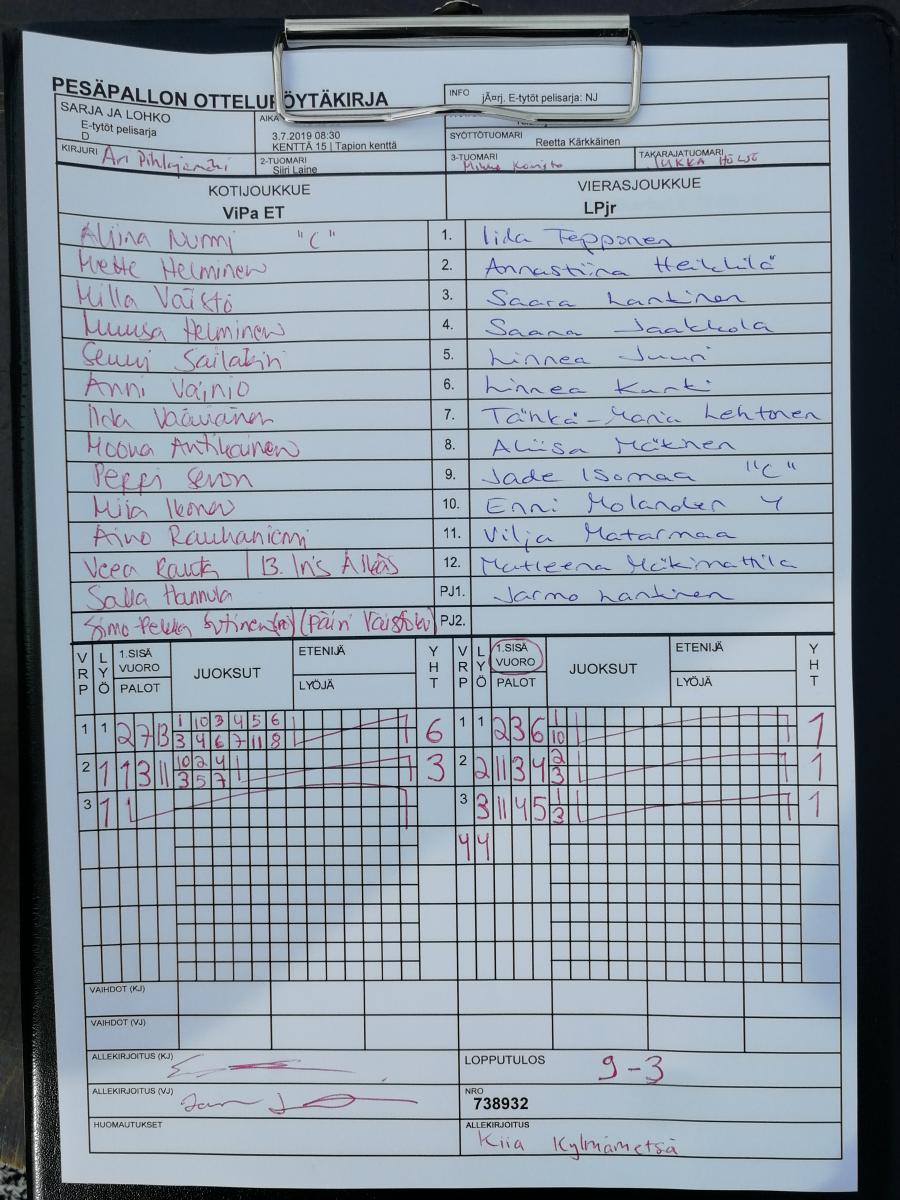 PESÄPALLON OTTELUPÖYTÄKIRJA
INFO järj. E-tytöt pelisarja: NJ
SARJA JA LOHKO
E-tytöt pelisarja
D
AIKA
3.7.2019 08:30
KENTTÄ 15 | Tapion kenttä
SYÖTTÖTUOMARI
Reetta Kärkkäinen
KIRJURI Ari Pihlajamäki
2-TUOMARI
Siiri Laine
3-TUOMARI
Mikko Koivisto
TAKARAJATUOMARI
JUKKA
KOTIJOUKKUE
ViPa ET
VIERASJOUKKUE
LPjr
Aliina Nurmi "C" 1. Iida Tepponen
Mette Helminen 2. Annastiina Heikkilä
Milla Väistö 3. Saara Lankinen
Muusa Helminen 4. Saana Jaakkola
Senni 5. Linnea Juuri
Anni Väiniö 6. Linnea Kunki
Iida Väänänen 7. Tähkä-Maria Lehtonen
Moona Antikainen 8. Aliisa Mäkinen
Peppi Sevon 9. Jade Isomaa "C"
Miia Ikonen 10. Enni Molander Y
Aino Rauhaniemi 11. Vilja Matarmaa
Veea Rauta | 13. Iris 12. Matleena Mäkimattila
Salla Hannula PJ1. Jarmo Lankinen
Simo Pekka (Päivi Väistö) PJ2.
VRP LYÖ 1.SISÄ VUORO PALOT JUOKSUT ETENIJÄ LYÖJÄ YHT VRP LYÖ 1.SISÄ VUORO PALOT JUOKSUT ETENIJÄ LYÖJÄ YHT
1 1 2 7 13 1 10 3 4 5 6 6 1 1 2 3 6 1 1
3 4 6 7 11 8 10
2 1 1 3 11 10 2 4 3 2 2 11 3 4 2 1
3 5 7 3
3 1 3 3 11 4 5 1 1
3
4 4
VAIHDOT (KJ)
VAIHDOT (VJ)
ALLEKIRJOITUS (KJ)
LOPPUTULOS 9-3
ALLEKIRJOITUS (VJ)
NRO
738932
HUOMAUTUKSET
ALLEKIRJOITUS
Kiia Kylmämetsä